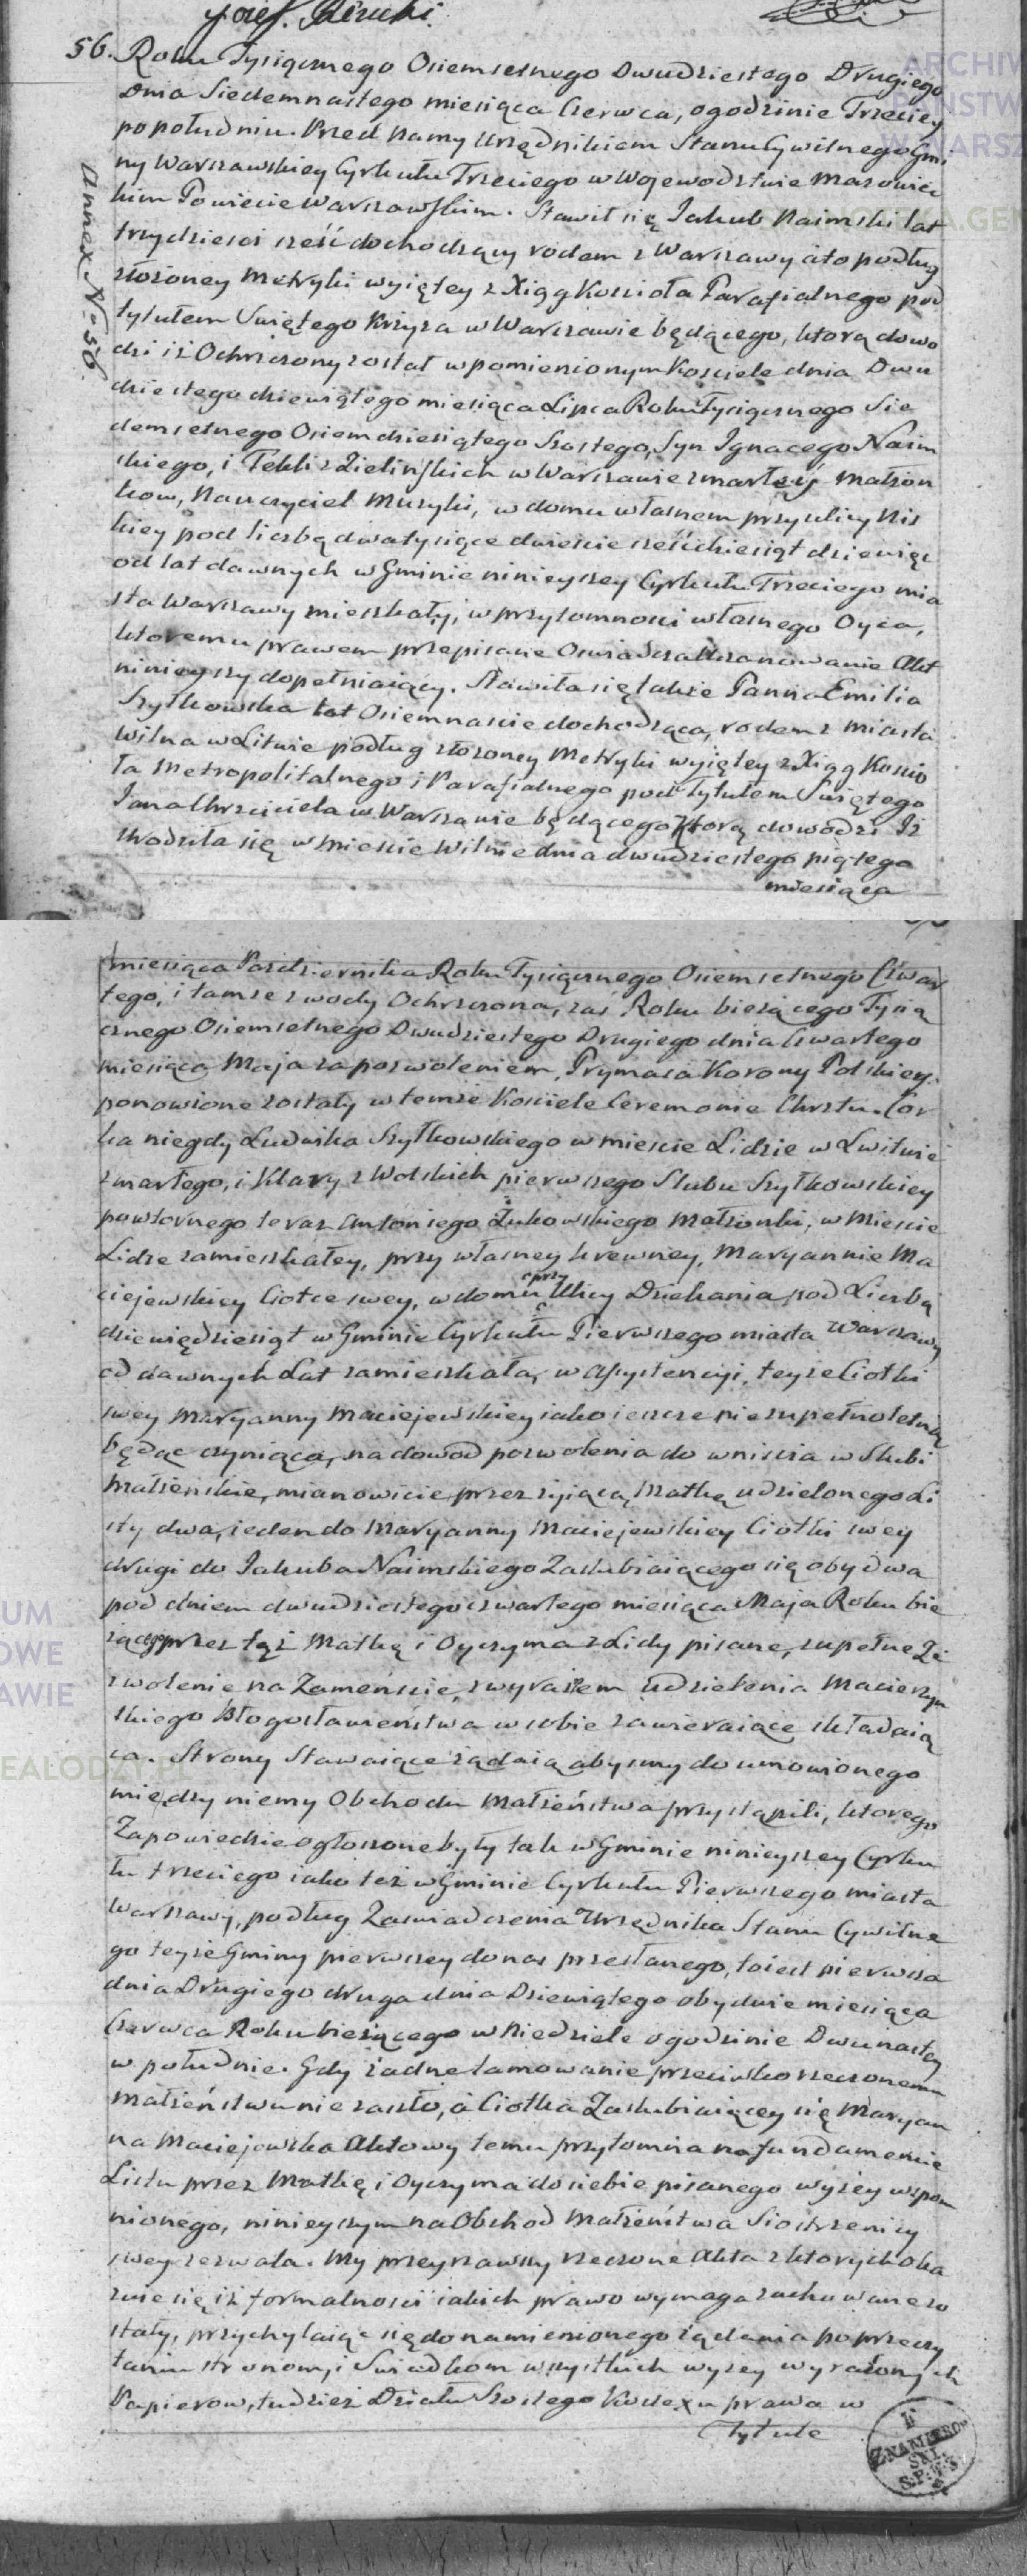 Józef
56. Roku Tysiącznego Osiemsetnego Dwudziestego Drugiego
Dnia Siedemnastego miesiąca Czerwca, ogodzinie Trzeciey
popołudniu. Przed Namy Urzędnikiem Stanu Cywilnego Gmi
ny Warszawskiey Cyrkułu Trzeciego w Wojewodztwie Mazowiec
kim Powiecie Warszawskim. Stawił się Jakub Naimski lat
trzydziesci sześć dochodzący rodem z Warszawy a to podług
złożoney Metryki wyiętey z Xiąg Kościoła Parafialnego pod
tytułem Świętego Krzyża w Warszawie będącego, którą dowo
dzi iż Ochrzczony został w pomienionym Kosciele dnia Dwu
dziestego dziewiątego miesiąca Lipca Roku Tysiącznego Sie
demsetnego Osiemdziesiątego Szostego, Syn Ignacego Naim
skiego, i Tekli z Zielińskich w Warszawie zmarłey Małżon
kow, Nauczyciel Muzyki, w domu własnem przy ulicy Nis
kiey pod liczbą dwa tysiące dwieście sześćdziesiąt dziewięc
od lat dawnych w Gminie ninieyszey Cyrkułu Trzeciego mia
sta Warszawy mieszkały, w przytomności własnego Oyca,
ktoremu prawem przepisane Uszanowanie Akt
ninieyszy dopełniaiący. Stawiła się także Panna Emilia
Szyłkowska lat Osiemnascie dochodząca, rodem z miasta
Wilna w Litwie podług złożoney Metryki wyiętey z Xiąg Koscio
ła Metropolitalnego i Parafialnego pod Tytułem Świętego
Jana Chrzciciela w Warszawie będącego którą dowodzi Iż
urodziła się w mieście Wilnie dnia dwudziestego piątego
miesiąca
Annex N. 56.
miesiąca Pazdziernika Roku Tysiącznego Osiemsetnego Czwar
tego, i tamże z wody Ochrzczona, zaś Roku bieżącego Tysią
cznego Osiemsetnego Dwudziestego Drugiego dnia Czwartego
miesiąca Maja za pozwoleniem, Prymasa Korony Polskiey
ponowione zostały w temże Kosciele Ceremonie Chrztu. Cor
ka niegdy Ludwika Szyłkowskiego w miescie Lidzie w Litwie
zmarłego, i Klary z Wolskich pierwszego Slubu Szyłkowskiey
powtornego teraz Antoniego Żukowskiego Małżonki, w Miescie
Lidze zamieszkałey, przy własney krewney, Maryannie Ma
ciejewskiey Ciotce swey, w domu przy Ulicy Dziekania pod Liczbą
dziewiędziesiąt w Gminie Cyrkułu Pierwszego miasta Warszawy
od dawnych Lat zamieszkała, w Assystencyi, teyże Ciotki
swey Maryanny Maciejewskiey iako ieszcze niezupełnoletnią
będąc czyniąca, na dowod pozwolenia do wniscia w Slubi
Małżenskie, mianowicie przez żyiącą Matkę udzielonego Li
sty dwa, ieden do Maryanny Maciejewskiey Ciotki swey
drugi do Jakuba Naimskiego Zaslubiaiącego się obydwa
pod dniem dwudziestego czwartego miesiąca Maja Roku bie
żącego przez tąż Matkę i Oyczyma z Lidy pisane, zupełne Ze
zwolenie na Zamęńscie, z wyrazem Udzielenia Macierzyn
skiego Błogosławieństwa w sobie zawieraiące składaią
ca. Strony Stawaiące żądaią abysmy do umowionego
między niemy Obchodu Małżeństwa przystąpili, ktorego
Zapowiedzie ogłoszone były tak w Gminie ninieyszey Cyrku
łu trzeciego iako też w Gminie Cyrkułu Pierwszego miasta
Warszawy, podług Zaswiadczenia Urzędnika Stanu Cywilne
go teyże Gminy pierwszey do nas przesłanego, to iest pierwsza
dnia Drugiego druga dnia Dziewiątego obydwie miesiąca
Czerwca Roku bieżącego w Niedziele o godzinie Dwunastey
w południe. Gdy żadne tamowanie przeciwko rzeczonemu
Małżeństwu nie zaszło, a Ciotka Zaslubiaiącey się Maryan
na Maciejewska Aktowy temu przytomna na fundamencie
Listu przez Matkę i Oyczyma do siebie pisanego wyżey wspom
nionego, ninieyszym na Obchod Małżeństwa Siostrzenicy
swey zezwala. My przeyrzawszy rzeczone Akta z ktorych oka
zuie się iż formalności iakich prawo wymaga zachowane zo
stały, przychylaiąc się do namienionego żądania po przeczy
taniu stronom, i Swiadkom wszystkich wyżey wyrażonych
Papierow, tudzież Działu Szostego Kodexu prawa w
Tytule
ZNAMIEROW